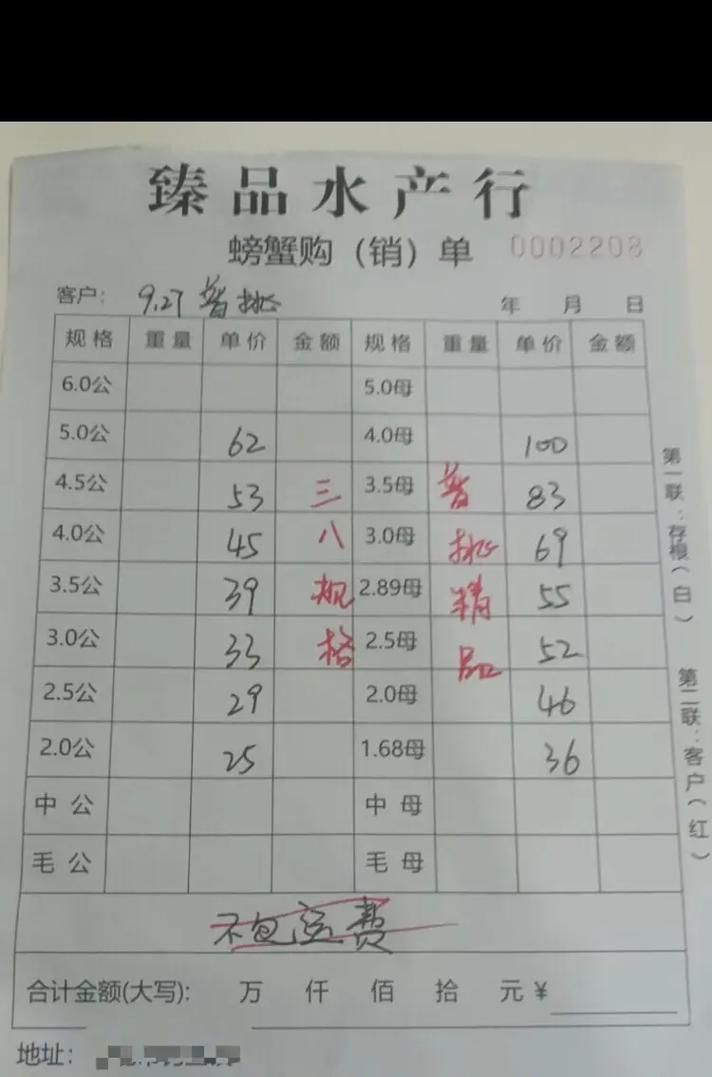 臻品水产行
螃蟹购（销）单 0002208
客户： 9.27 普挑 年 月 日
规格 重量 单价 金额 规格 重量 单价 金额
6.0公 5.0母
5.0公 62 4.0母 100
4.5公 53 三 3.5母 普 83
4.0公 45 八 3.0母 挑 69
3.5公 39 规 2.89母 精 55
3.0公 33 格 2.5母 品 52
2.5公 29 2.0母 46
2.0公 25 1.68母 36
中公 中母
毛公 毛母
不包运费
合计金额(大写): 万 仟 佰 拾 元 ¥
地址：
第一联：存根（白）
第二联：客户（红）